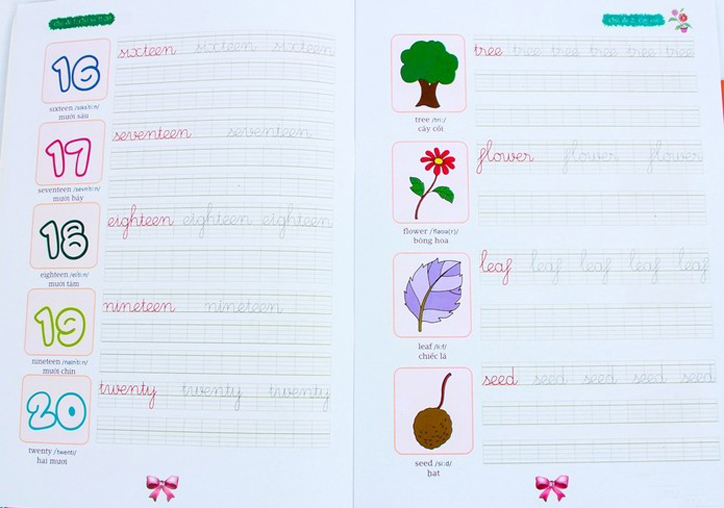 16
sixteen sixteen sixteen
sixteen
mười sáu
17
seventeen seventeen
seventeen
mười bảy
18
eighteen eighteen eighteen
eighteen
mười tám
19
nineteen nineteen
nineteen
mười chín
20
twenty twenty twenty
twenty /ˈtwenti/
hai mươi
tree tree tree tree tree tree
tree /triː/
cây cối
flower flower flower
flower /ˈflaʊə(r)/
bông hoa
leaf leaf leaf leaf leaf
leaf /liːf/
chiếc lá
seed seed seed seed seed
seed /siːd/
hạt